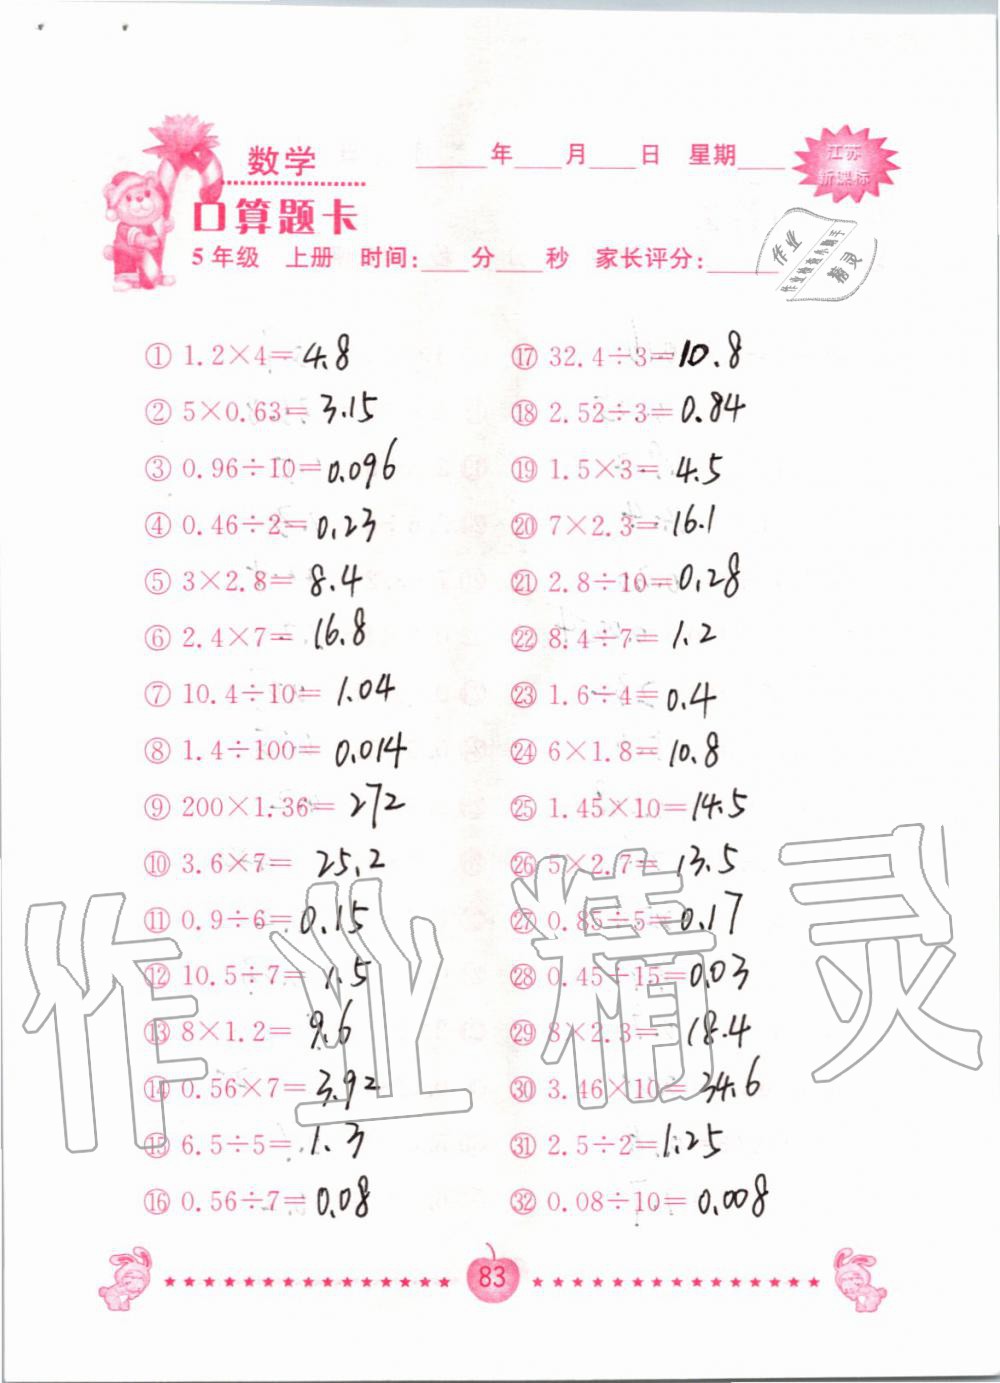 数学
____年____月____日 星期____
江苏
新课标
口算题卡
5年级 上册 时间:____分____秒 家长评分:____
作业
作业检查小助手
精灵
① 1.2×4=4.8
② 5×0.63=3.15
③ 0.96÷10=0.096
④ 0.46÷2=0.23
⑤ 3×2.8=8.4
⑥ 2.4×7=16.8
⑦ 10.4÷10=1.04
⑧ 1.4÷100=0.014
⑨ 200×1.36=272
⑩ 3.6×7=25.2
⑪ 0.9÷6=0.15
⑫ 10.5÷7=1.5
⑬ 8×1.2=9.6
⑭ 0.56×7=3.92
⑮ 6.5÷5=1.3
⑯ 0.56÷7=0.08
⑰ 32.4÷3=10.8
⑱ 2.52÷3=0.84
⑲ 1.5×3=4.5
⑳ 7×2.3=16.1
㉑ 2.8÷10=0.28
㉒ 8.4÷7=1.2
㉓ 1.6÷4=0.4
㉔ 6×1.8=10.8
㉕ 1.45×10=14.5
㉖ 5×2.7=13.5
㉗ 0.85÷5=0.17
㉘ 0.45÷15=0.03
㉙ 8×2.3=18.4
㉚ 3.46×10=34.6
㉛ 2.5÷2=1.25
㉜ 0.08÷10=0.008
作业精灵
83